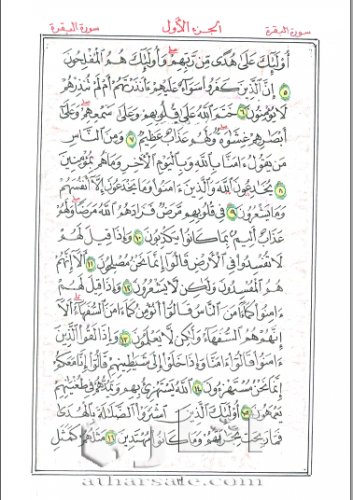 سورة البقرة الجزء الأول سورة البقرة
أُوْلَٰئِكَ عَلَىٰ هُدًى مِّن رَّبِّهِمْ وَأُوْلَٰئِكَ هُمُ الْمُفْلِحُونَ
٥ إِنَّ الَّذِينَ كَفَرُوا سَوَاءٌ عَلَيْهِمْ ءَأَنذَرْتَهُمْ أَمْ لَمْ تُنذِرْهُمْ
لَا يُؤْمِنُونَ ٦ خَتَمَ اللَّهُ عَلَىٰ قُلُوبِهِمْ وَعَلَىٰ سَمْعِهِمْ وَعَلَىٰ
أَبْصَٰرِهِمْ غِشَٰوَةٌ وَلَهُمْ عَذَابٌ عَظِيمٌ ٧ وَمِنَ النَّاسِ
مَن يَقُولُ ءَامَنَّا بِاللَّهِ وَبِالْيَوْمِ الْآخِرِ وَمَا هُم بِمُؤْمِنِينَ
٨ يُخَٰدِعُونَ اللَّهَ وَالَّذِينَ ءَامَنُوا وَمَا يَخْدَعُونَ إِلَّا أَنفُسَهُمْ
وَمَا يَشْعُرُونَ ٩ فِي قُلُوبِهِم مَّرَضٌ فَزَادَهُمُ اللَّهُ مَرَضًا وَلَهُمْ
عَذَابٌ أَلِيمٌ بِمَا كَانُوا يَكْذِبُونَ ١٠ وَإِذَا قِيلَ لَهُمْ
لَا تُفْسِدُوا فِي الْأَرْضِ قَالُوا إِنَّمَا نَحْنُ مُصْلِحُونَ ١١ أَلَا إِنَّهُمْ
هُمُ الْمُفْسِدُونَ وَلَٰكِن لَّا يَشْعُرُونَ ١٢ وَإِذَا قِيلَ لَهُمْ
ءَامِنُوا كَمَا ءَامَنَ النَّاسُ قَالُوا أَنُؤْمِنُ كَمَا ءَامَنَ السُّفَهَاءُ أَلَا
إِنَّهُمْ هُمُ السُّفَهَاءُ وَلَٰكِن لَّا يَعْلَمُونَ ١٣ وَإِذَا لَقُوا الَّذِينَ
ءَامَنُوا قَالُوا ءَامَنَّا وَإِذَا خَلَوْا إِلَىٰ شَيَٰطِينِهِمْ قَالُوا إِنَّا مَعَكُمْ
إِنَّمَا نَحْنُ مُسْتَهْزِءُونَ ١٤ اللَّهُ يَسْتَهْزِئُ بِهِمْ وَيَمُدُّهُمْ فِي طُغْيَٰنِهِمْ
يَعْمَهُونَ ١٥ أُوْلَٰئِكَ الَّذِينَ اشْتَرَوُا الضَّلَٰلَةَ بِالْهُدَىٰ
فَمَا رَبِحَت تِّجَٰرَتُهُمْ وَمَا كَانُوا مُهْتَدِينَ ١٦ مَثَلُهُمْ كَمَثَلِ
atharsale.com